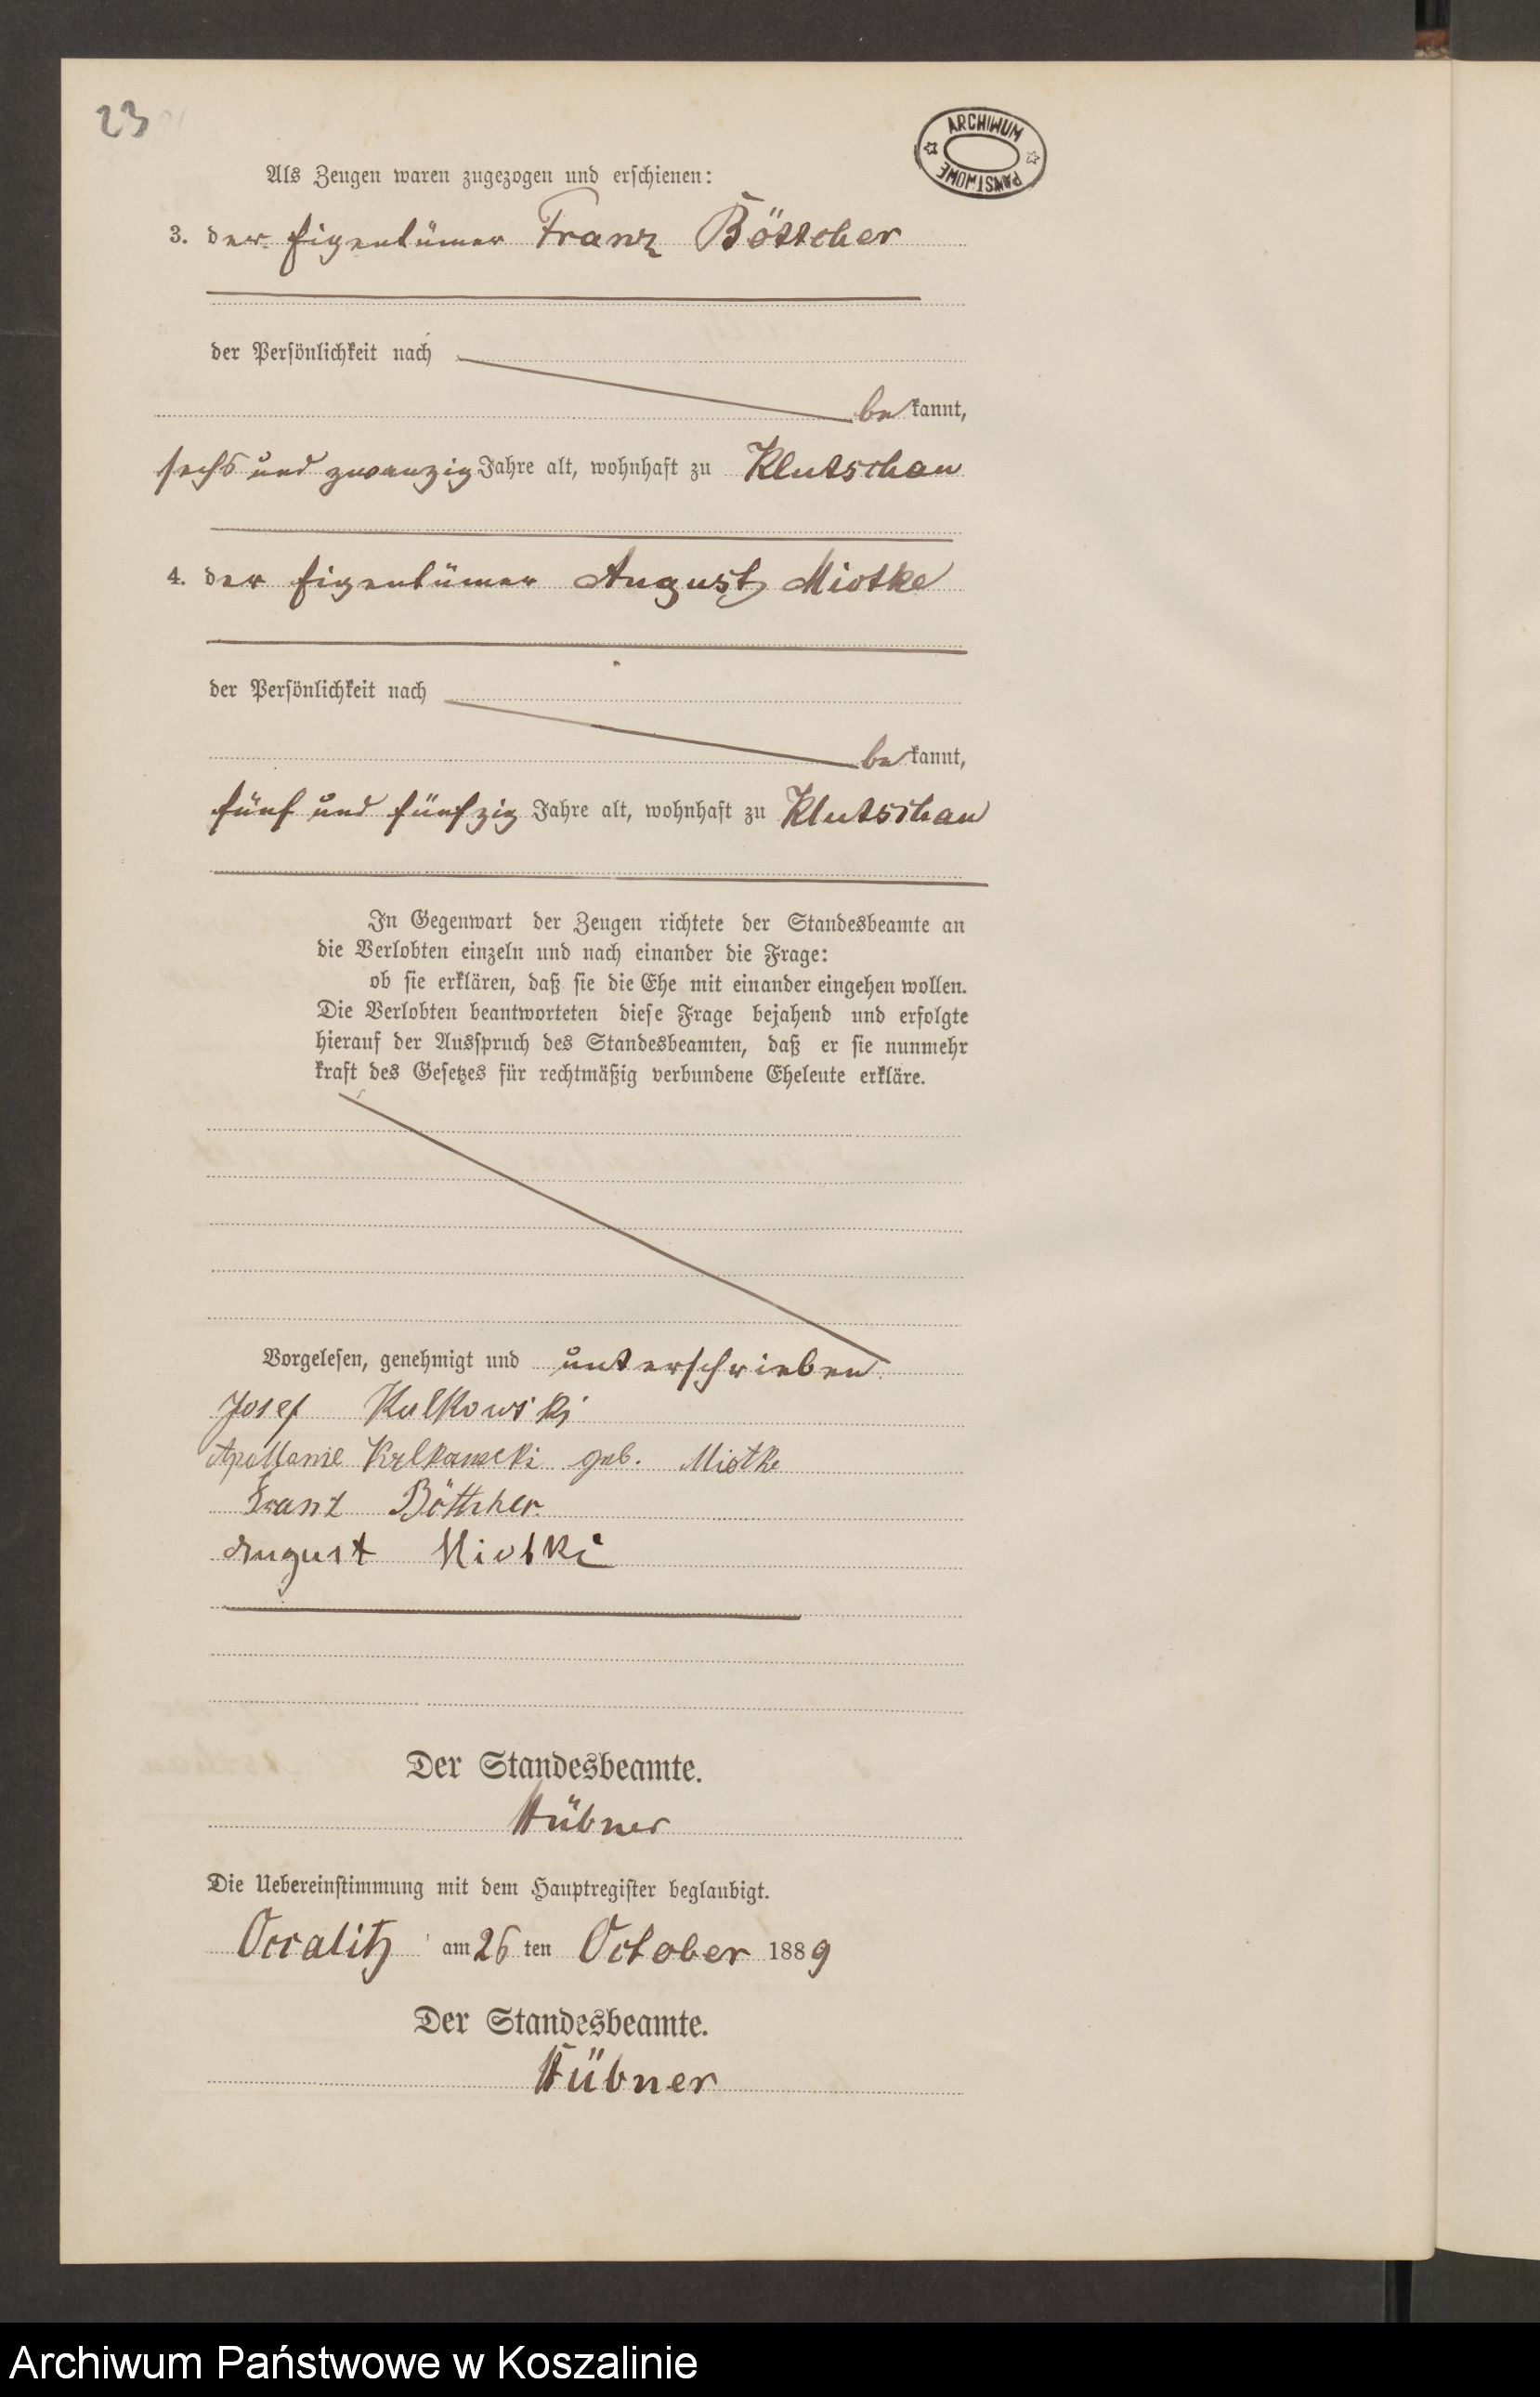 23
ARCHIWUM
PAŃSTWOWE
Als Zeugen waren zugezogen und erschienen:
3. der Eigentümer Franz Böttcher
der Persönlichkeit nach
be kannt,
sechs und zwanzig Jahre alt, wohnhaft zu Klutschau
4. der Eigentümer August Miotke
der Persönlichkeit nach
be kannt,
fünf und fünfzig Jahre alt, wohnhaft zu Klutschau
In Gegenwart der Zeugen richtete der Standesbeamte an
die Verlobten einzeln und nach einander die Frage:
ob sie erklären, daß sie die Ehe mit einander eingehen wollen.
Die Verlobten beantworteten diese Frage bejahend und erfolgte
hierauf der Ausspruch des Standesbeamten, daß er sie nunmehr
kraft des Gesetzes für rechtmäßig verbundene Eheleute erkläre.
Vorgelesen, genehmigt und unterschrieben
Josef Kulkowski
geb. Miotke
Franz Böttcher.
August Miotke
Der Standesbeamte.
Hübner
Die Uebereinstimmung mit dem Hauptregister beglaubigt.
Occalitz am 26 ten October 1889
Der Standesbeamte.
Hübner
Archiwum Państwowe w Koszalinie